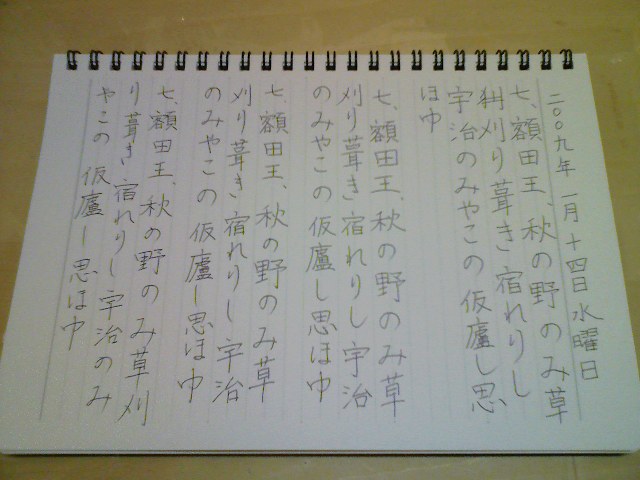 二〇〇九年 一月 十四日 水曜日
七、額田王、秋の野のみ草
刈り葺き宿れりし
宇治のみやこの仮廬し思
ほゆ
七、額田王、秋の野のみ草
刈り葺き宿れりし宇治
のみやこの仮廬し思ほゆ
七、額田王、秋の野のみ草
刈り葺き宿れりし宇治
のみやこの仮廬し思ほゆ
七、額田王、秋の野のみ草刈
り葺き宿れりし宇治のみ
やこの仮廬し思ほゆ